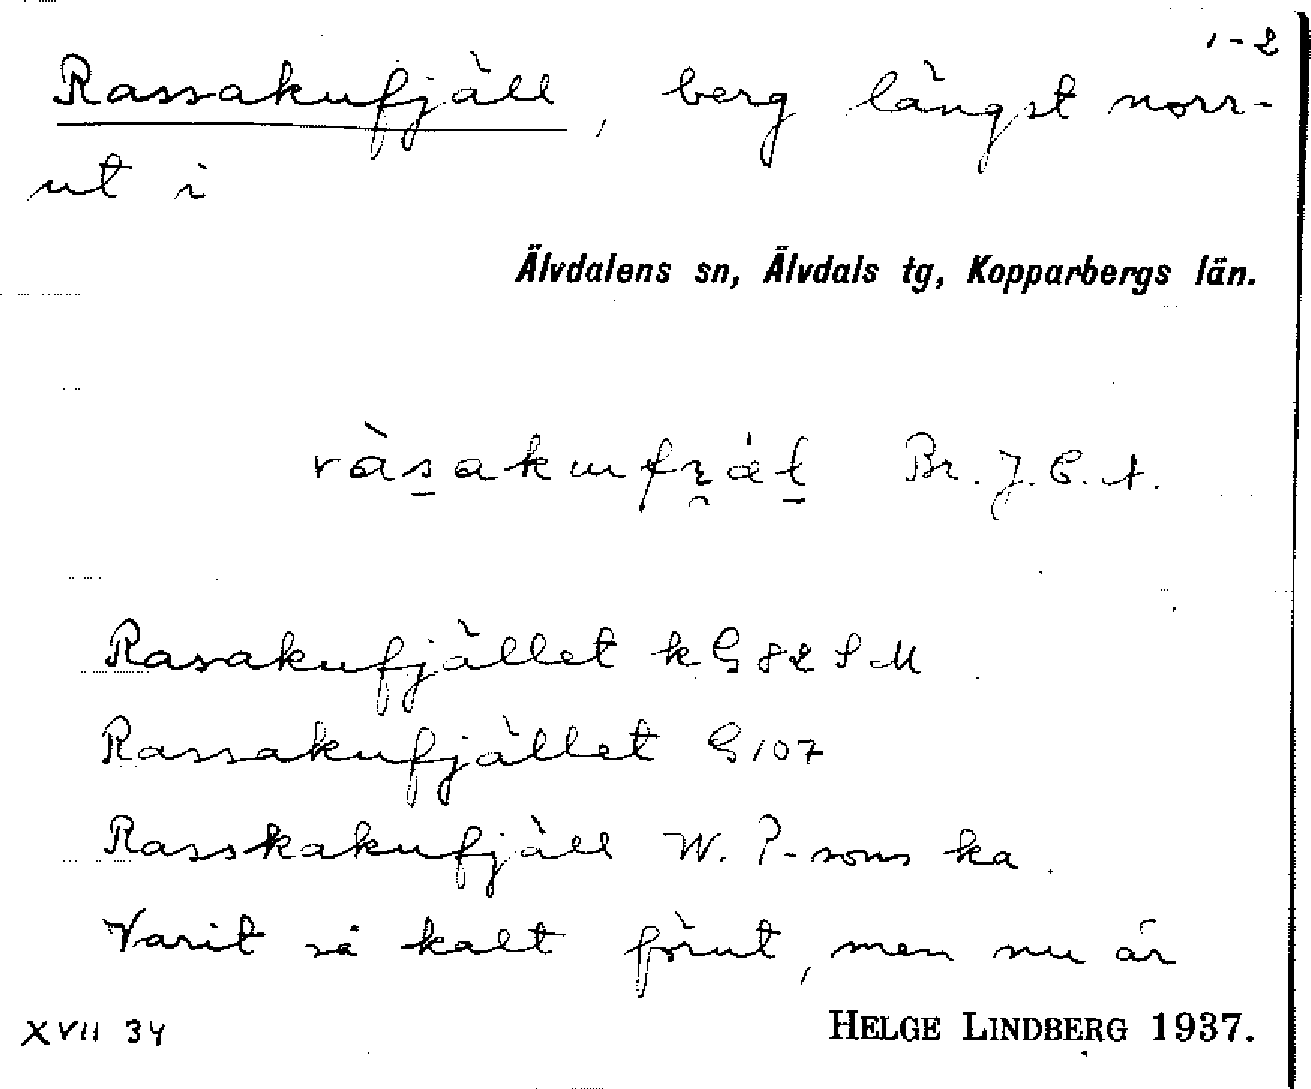 1-2
Rassakufjäll, berg längst norr-
ut i
Älvdalens sn, Älvdals tg, Kopparbergs län.
Br. J. E. A.
Rasakufjället k G 82 S M
Rassakufjället G 107
Rasskakufjäll W. P-sons ka.
Varit så kalt förut, men nu är
XVII 34
HELGE LINDBERG 1937.